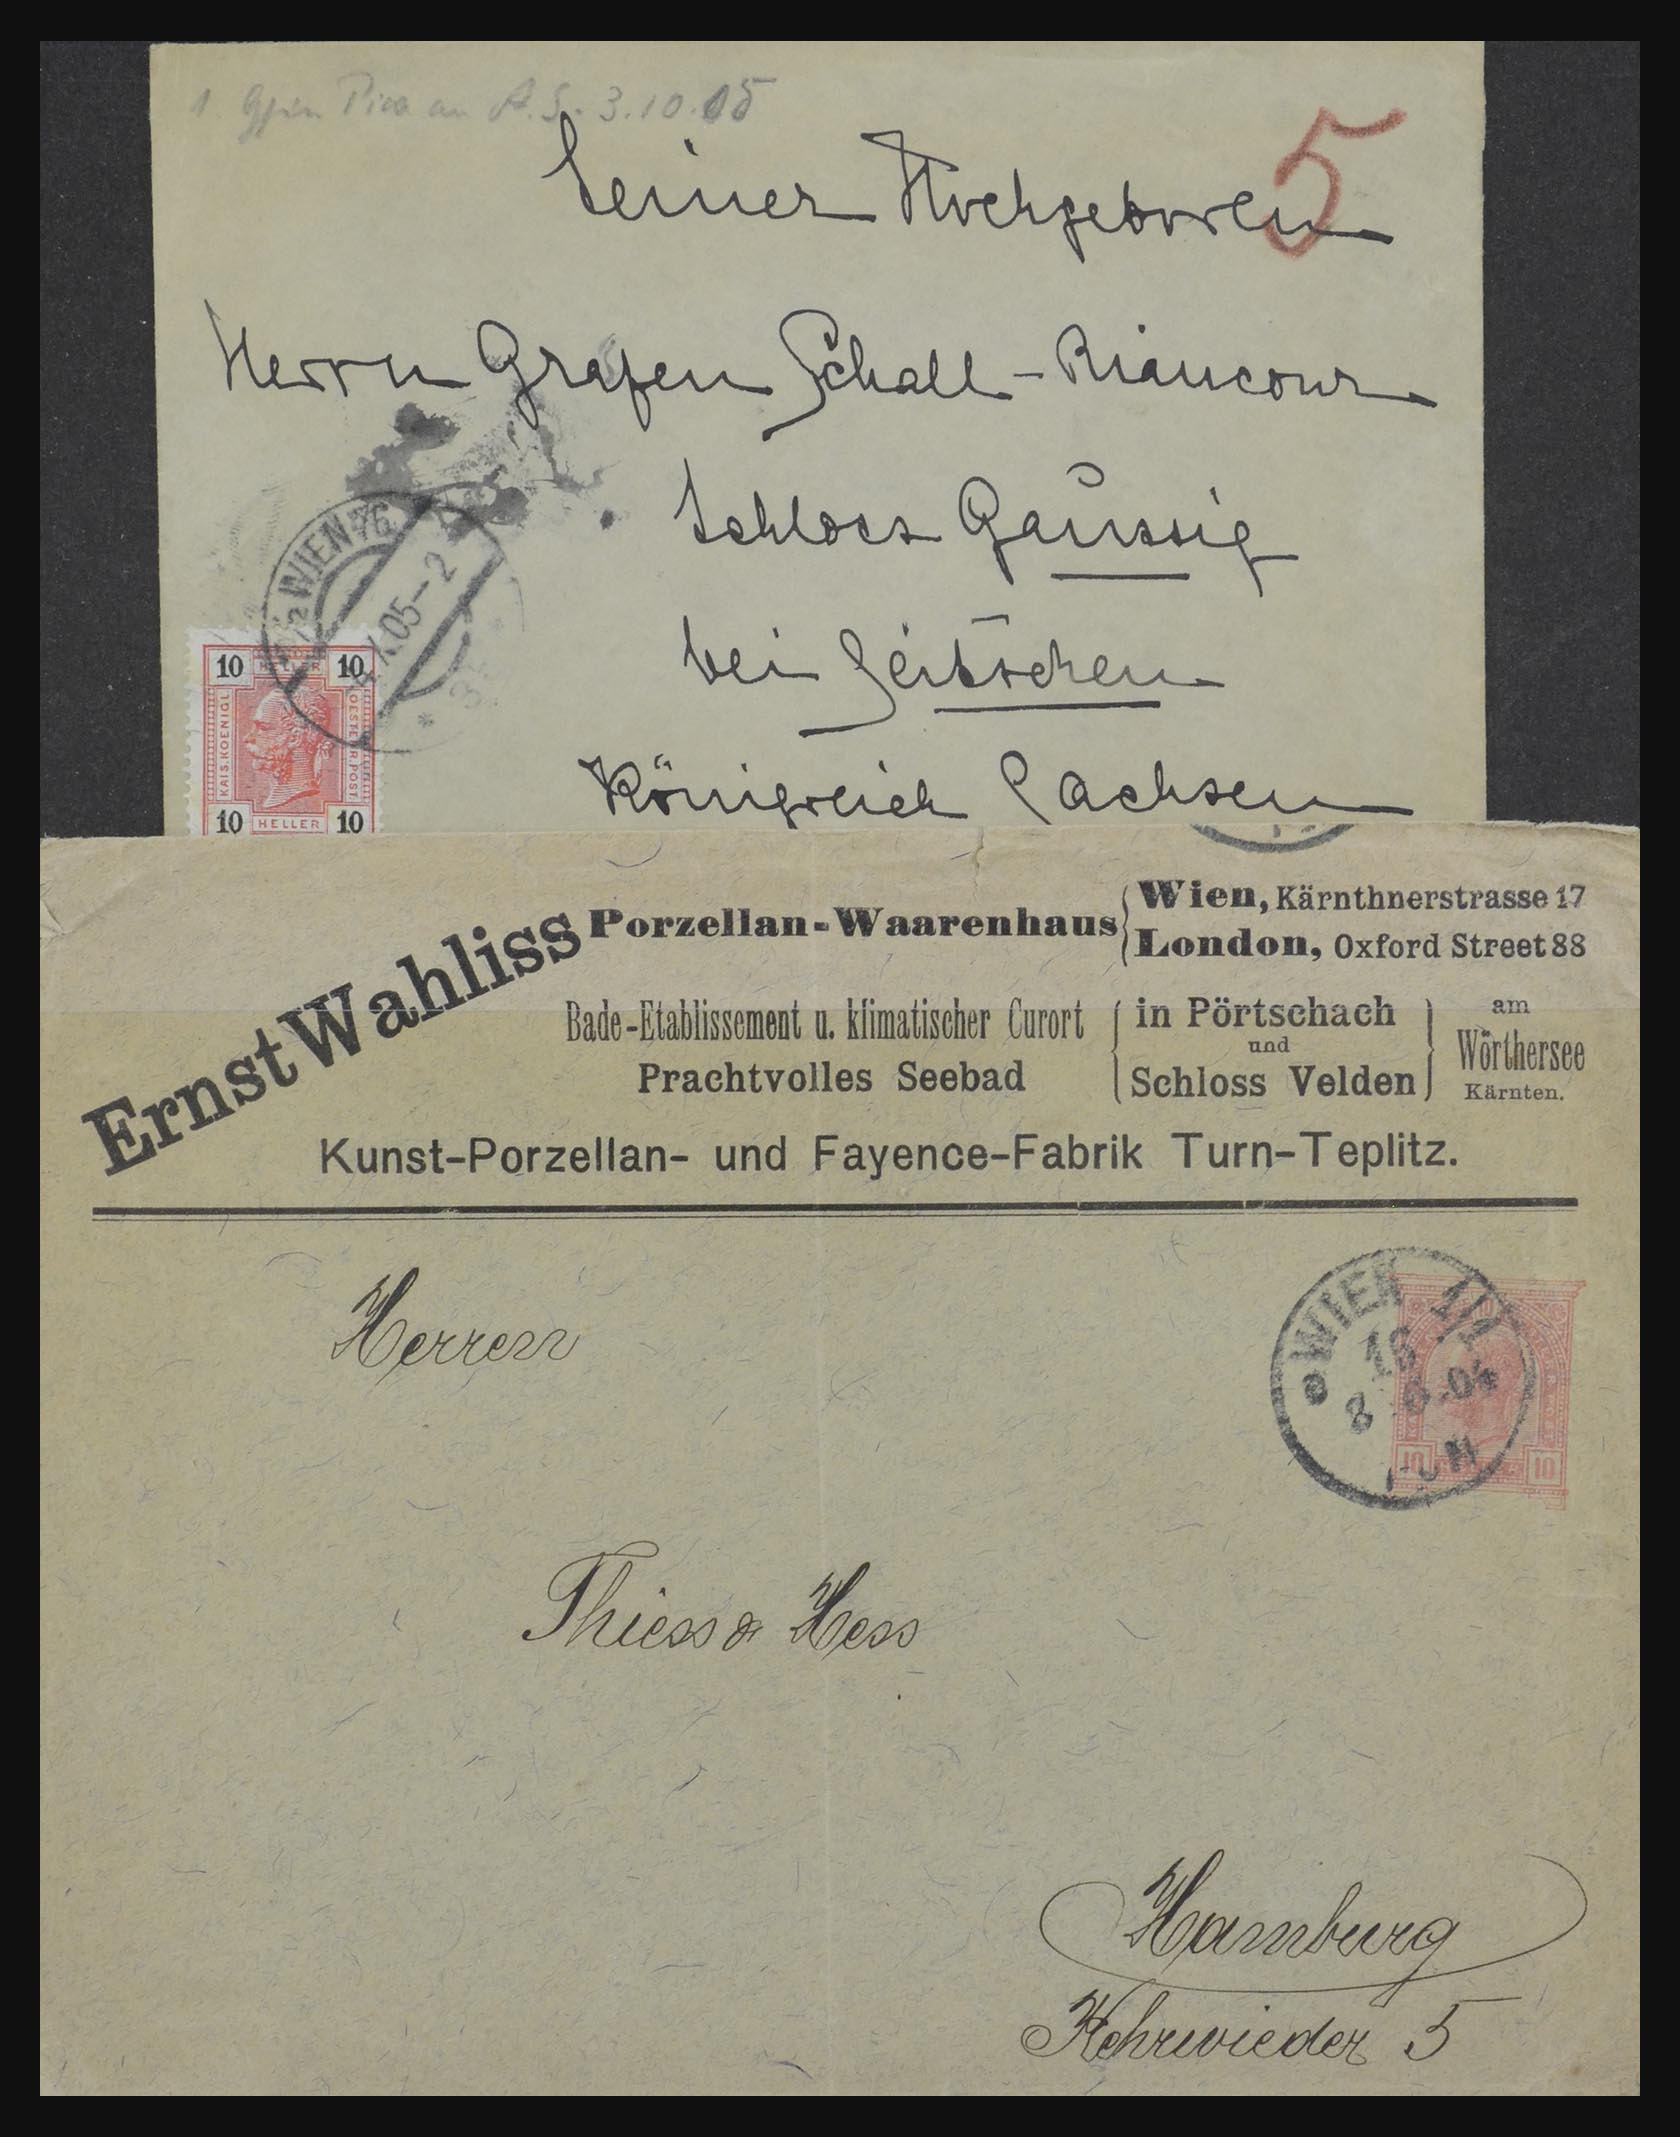 3.10.05
5
Seiner Hochgeboren
Herrn Grafen Schall-Riancour
Schloss Gaussig
bei Seitschen
Königreich Sachsen
WIEN 76
X.05-2
10 HELLER 10
KAIS.KOENIGL. OESTERR.POST.
10 HELLER 10
Ernst Wahliss
Porzellan-Waarenhaus
Wien, Kärnthnerstrasse 17
London, Oxford Street 88
Bade-Etablissement u. klimatischer Curort
Prachtvolles Seebad
in Pörtschach
und
Schloss Velden
am
Wörthersee
Kärnten.
Kunst-Porzellan- und Fayence-Fabrik Turn-Teplitz.
WIEN 1/1
10 10
Herren
Thiess & Hess
Hamburg
Kehrwieder 5